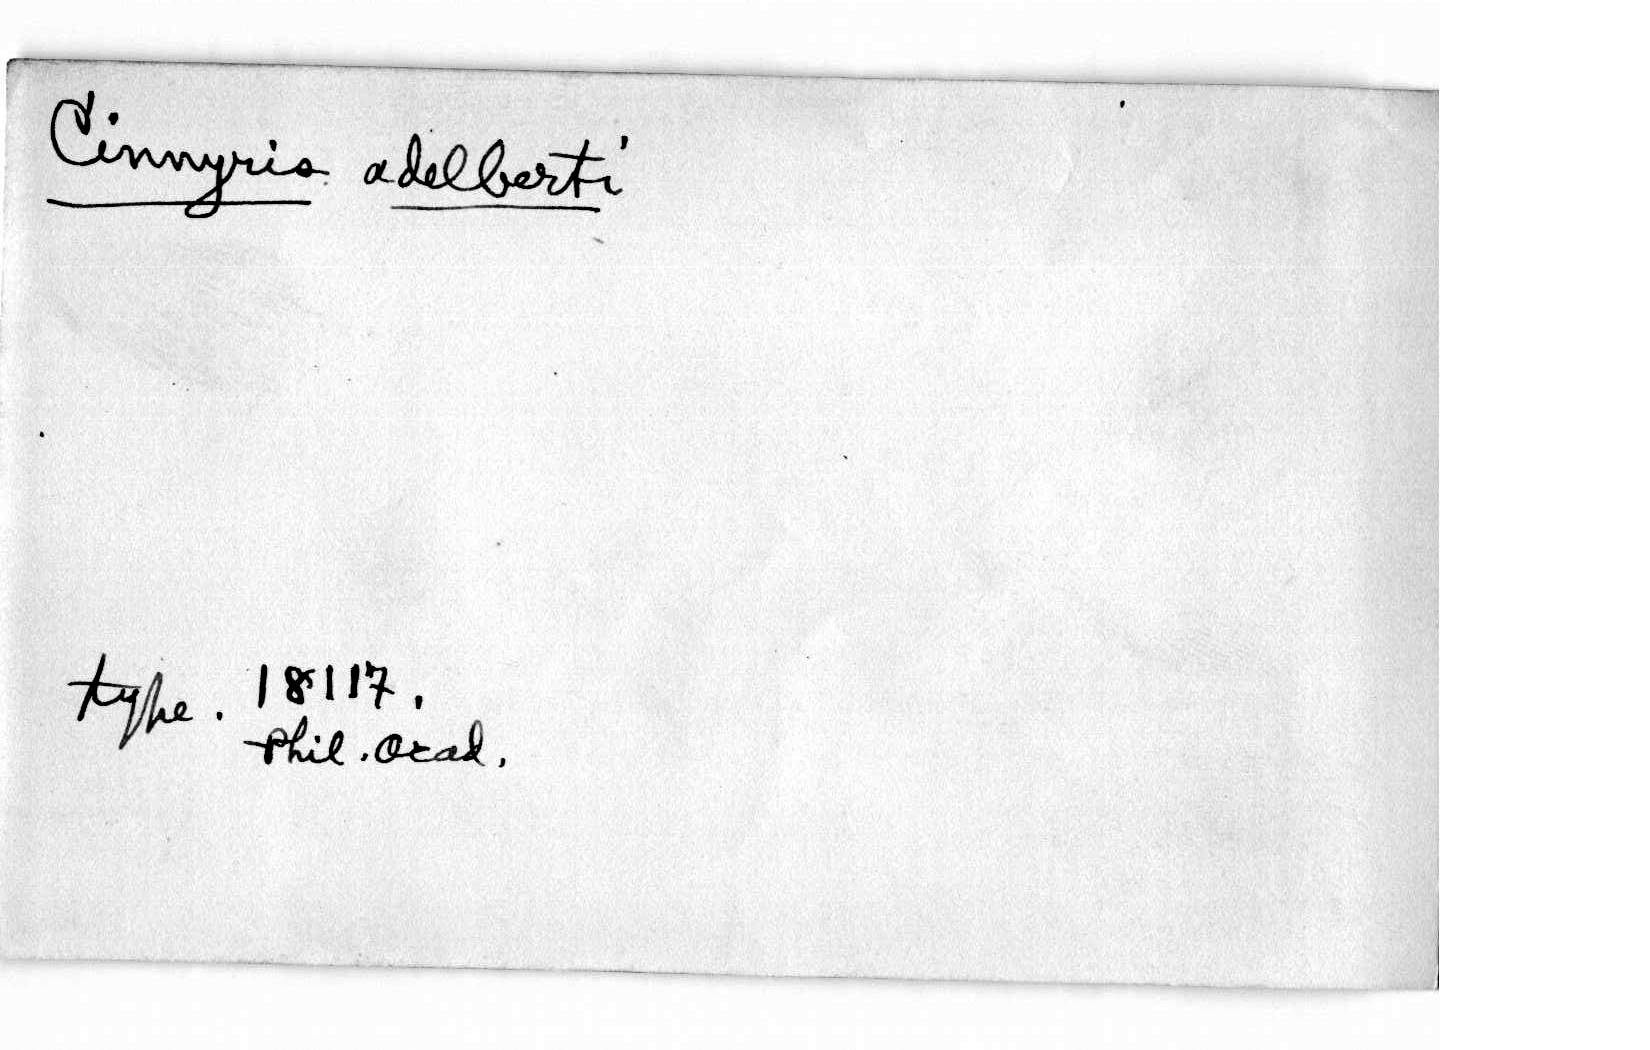 Cinnyris adelberti
type. 18117.
Phil. Acad.